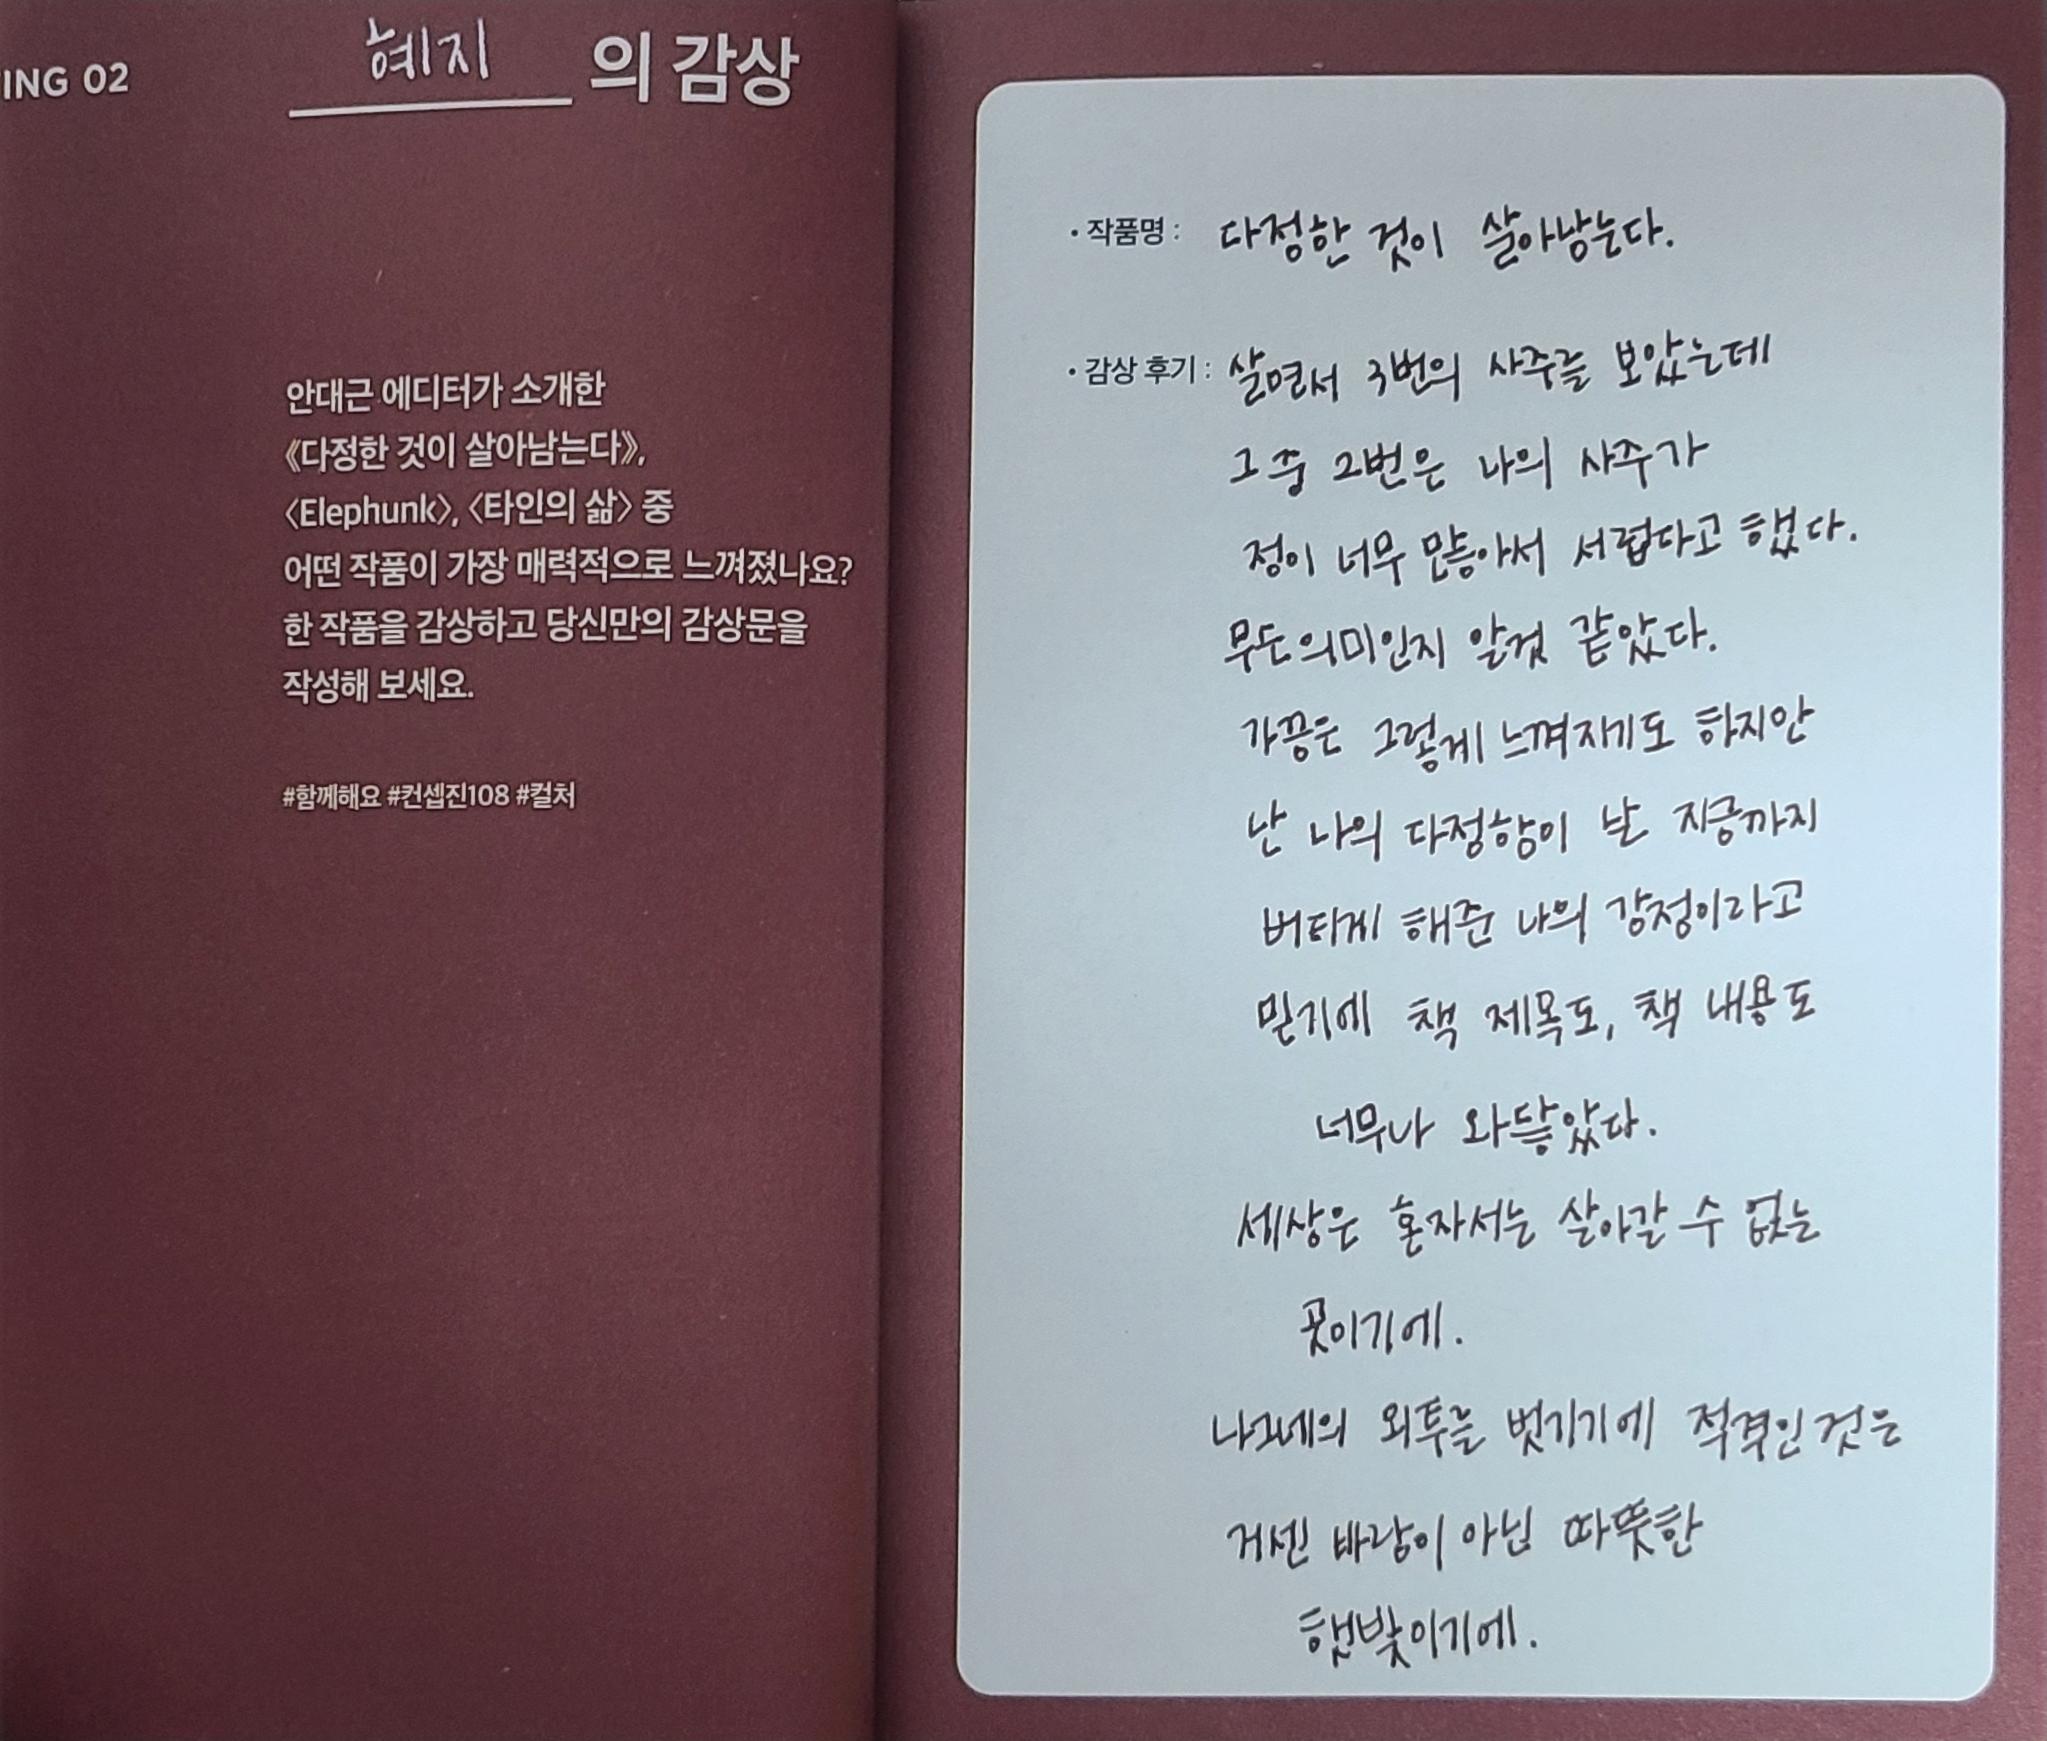 ING 02
혜지 의 감상
안대근 에디터가 소개한
《다정한 것이 살아남는다》,
〈Elephunk〉, 〈타인의 삶〉 중
어떤 작품이 가장 매력적으로 느껴졌나요?
한 작품을 감상하고 당신만의 감상문을
작성해 보세요.
#함께해요 #컨셉진108 #컬처
• 작품명 : 다정한 것이 살아남는다.
• 감상 후기 : 살면서 3번의 사주를 보았는데
그 중 2번은 나의 사주가
정이 너무 많아서 서럽다고 했다.
무슨 의미인지 알것 같았다.
가끔은 그렇게 느껴지기도 하지만
난 나의 다정함이 날 지금까지
버티게 해준 나의 강점이라고
믿기에 책 제목도, 책 내용도
너무나 와닿았다.
세상은 혼자서는 살아갈 수 없는
곳이기에.
나그네의 외투를 벗기기에 적격인 것은
거센 바람이 아닌 따뜻한
햇빛이기에.